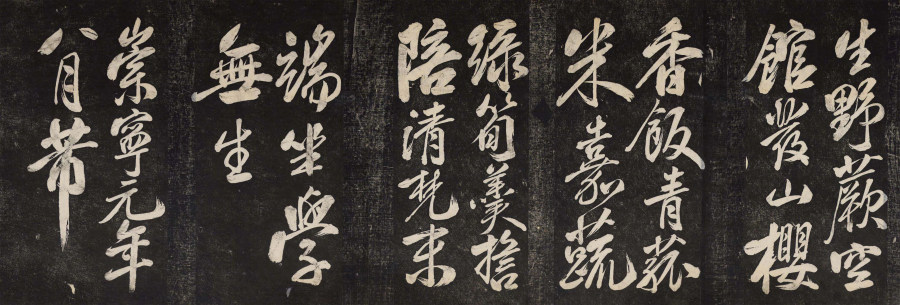 生野蕨空
館發山櫻
香飯青菰
米嘉蔬
綠筍羹
陪清梵末
端坐學
無生
崇寧元年
八月芾